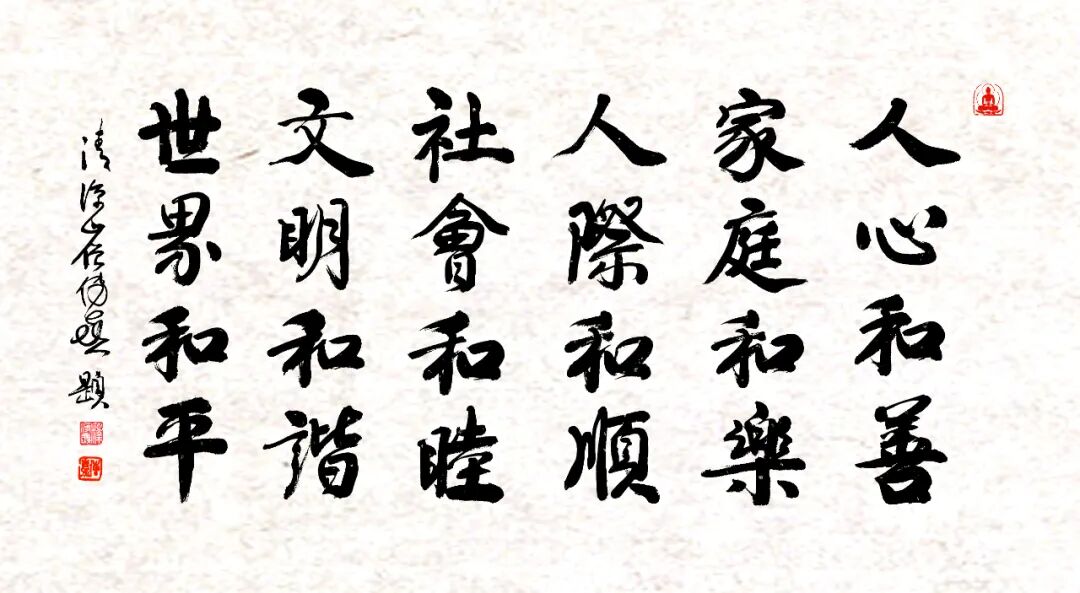 人心和善
家庭和樂
人際和順
社會和睦
文明和諧
世界和平
清涼山
題